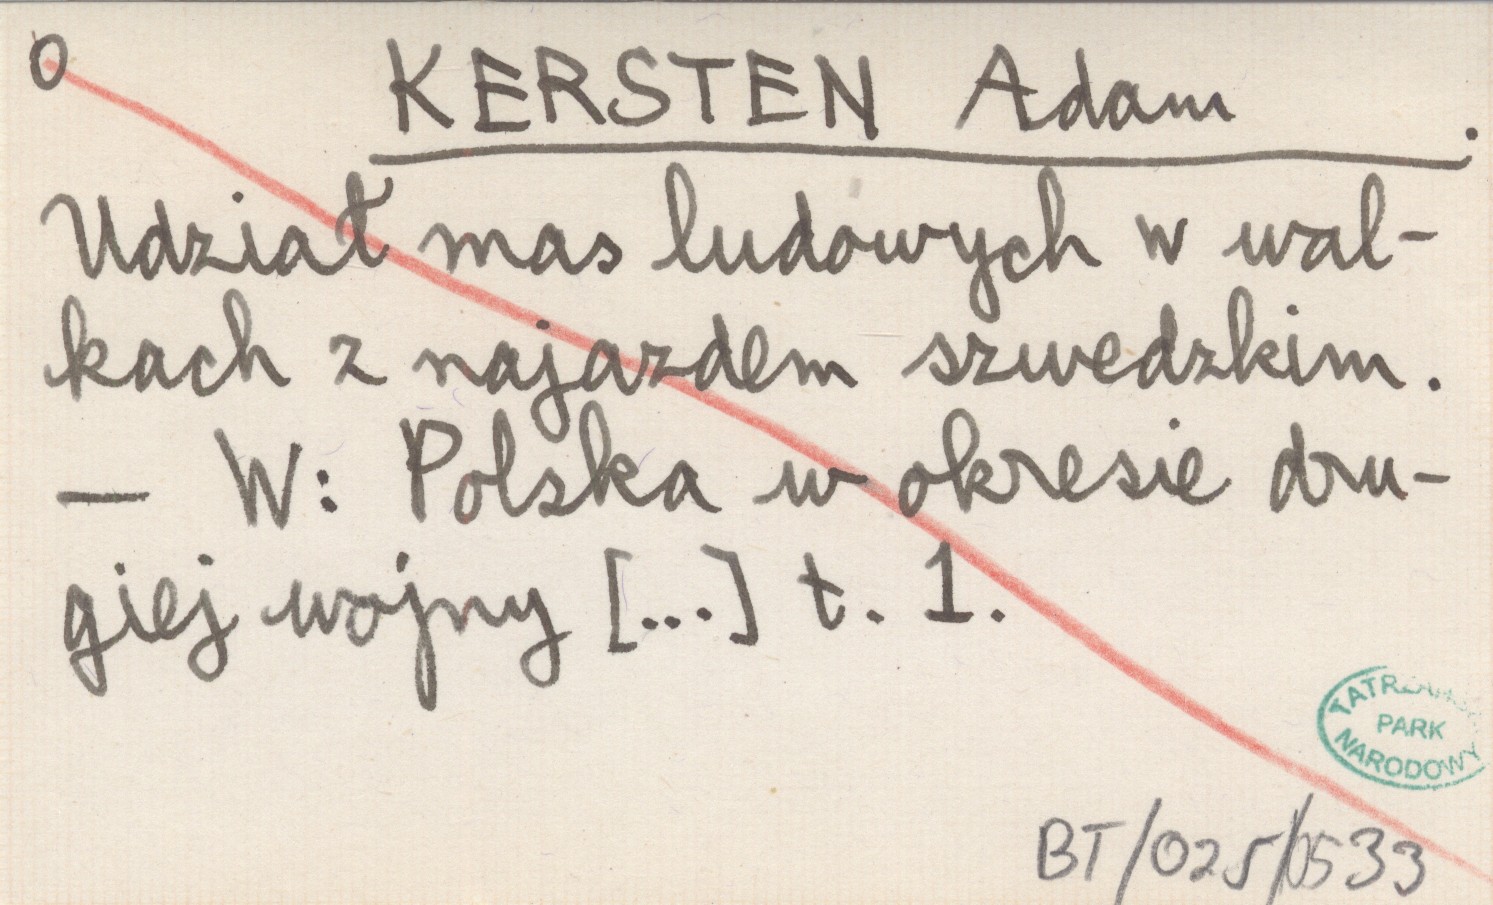 O KERSTEN Adam.
Udział mas ludowych w wal-
kach z najazdem szwedzkim.
— W: Polska w okresie dru-
giej wojny [...] t. 1.
TATRZAŃSKI
PARK
NARODOWY
BT/025/0533